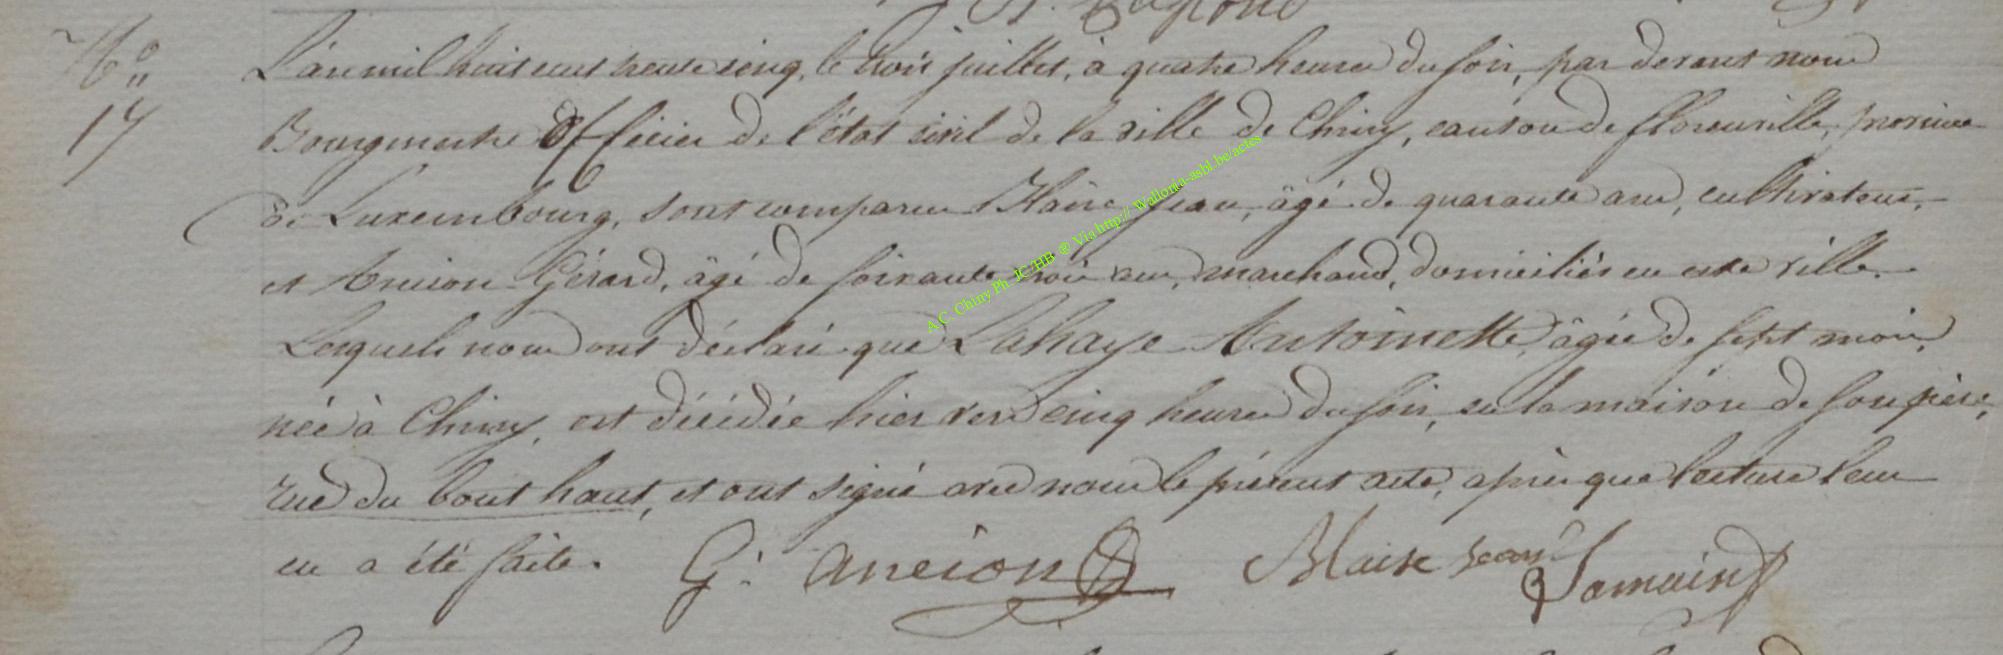 N°
17
L'an mil huit cent trente cinq, le trois juillet, à quatre heures du soir, par devant nous
Bourgmestre Officier de l'état civil de la ville de Chiny, canton de florenville, province
de Luxembourg, sont comparus Blaise Jean, âgé de quarante ans, cultivateur,
et Ancion Gérard, âgé de soixante trois ans, marchand, domiciliés en cette ville.
Lesquels nous ont déclaré que Lahaye Antoinette, âgée de sept mois,
née à Chiny, est décédée hier vers cinq heures du soir, en la maison de son père,
rue du bout haut, et ont signé avec nous le présent acte, après que lecture leur
en a été faite. G: ancion Blaise Jean
A.C. Chiny Ph. JC HB @ Via http:// Wallonia-asbl.be/actes